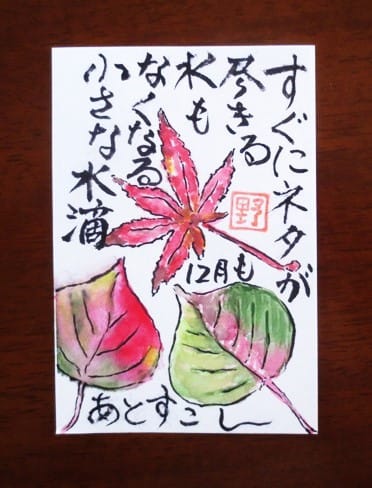 すぐにネタが
尽きる
水も
なくなる
小さな水滴
野
12月も
あとすこし